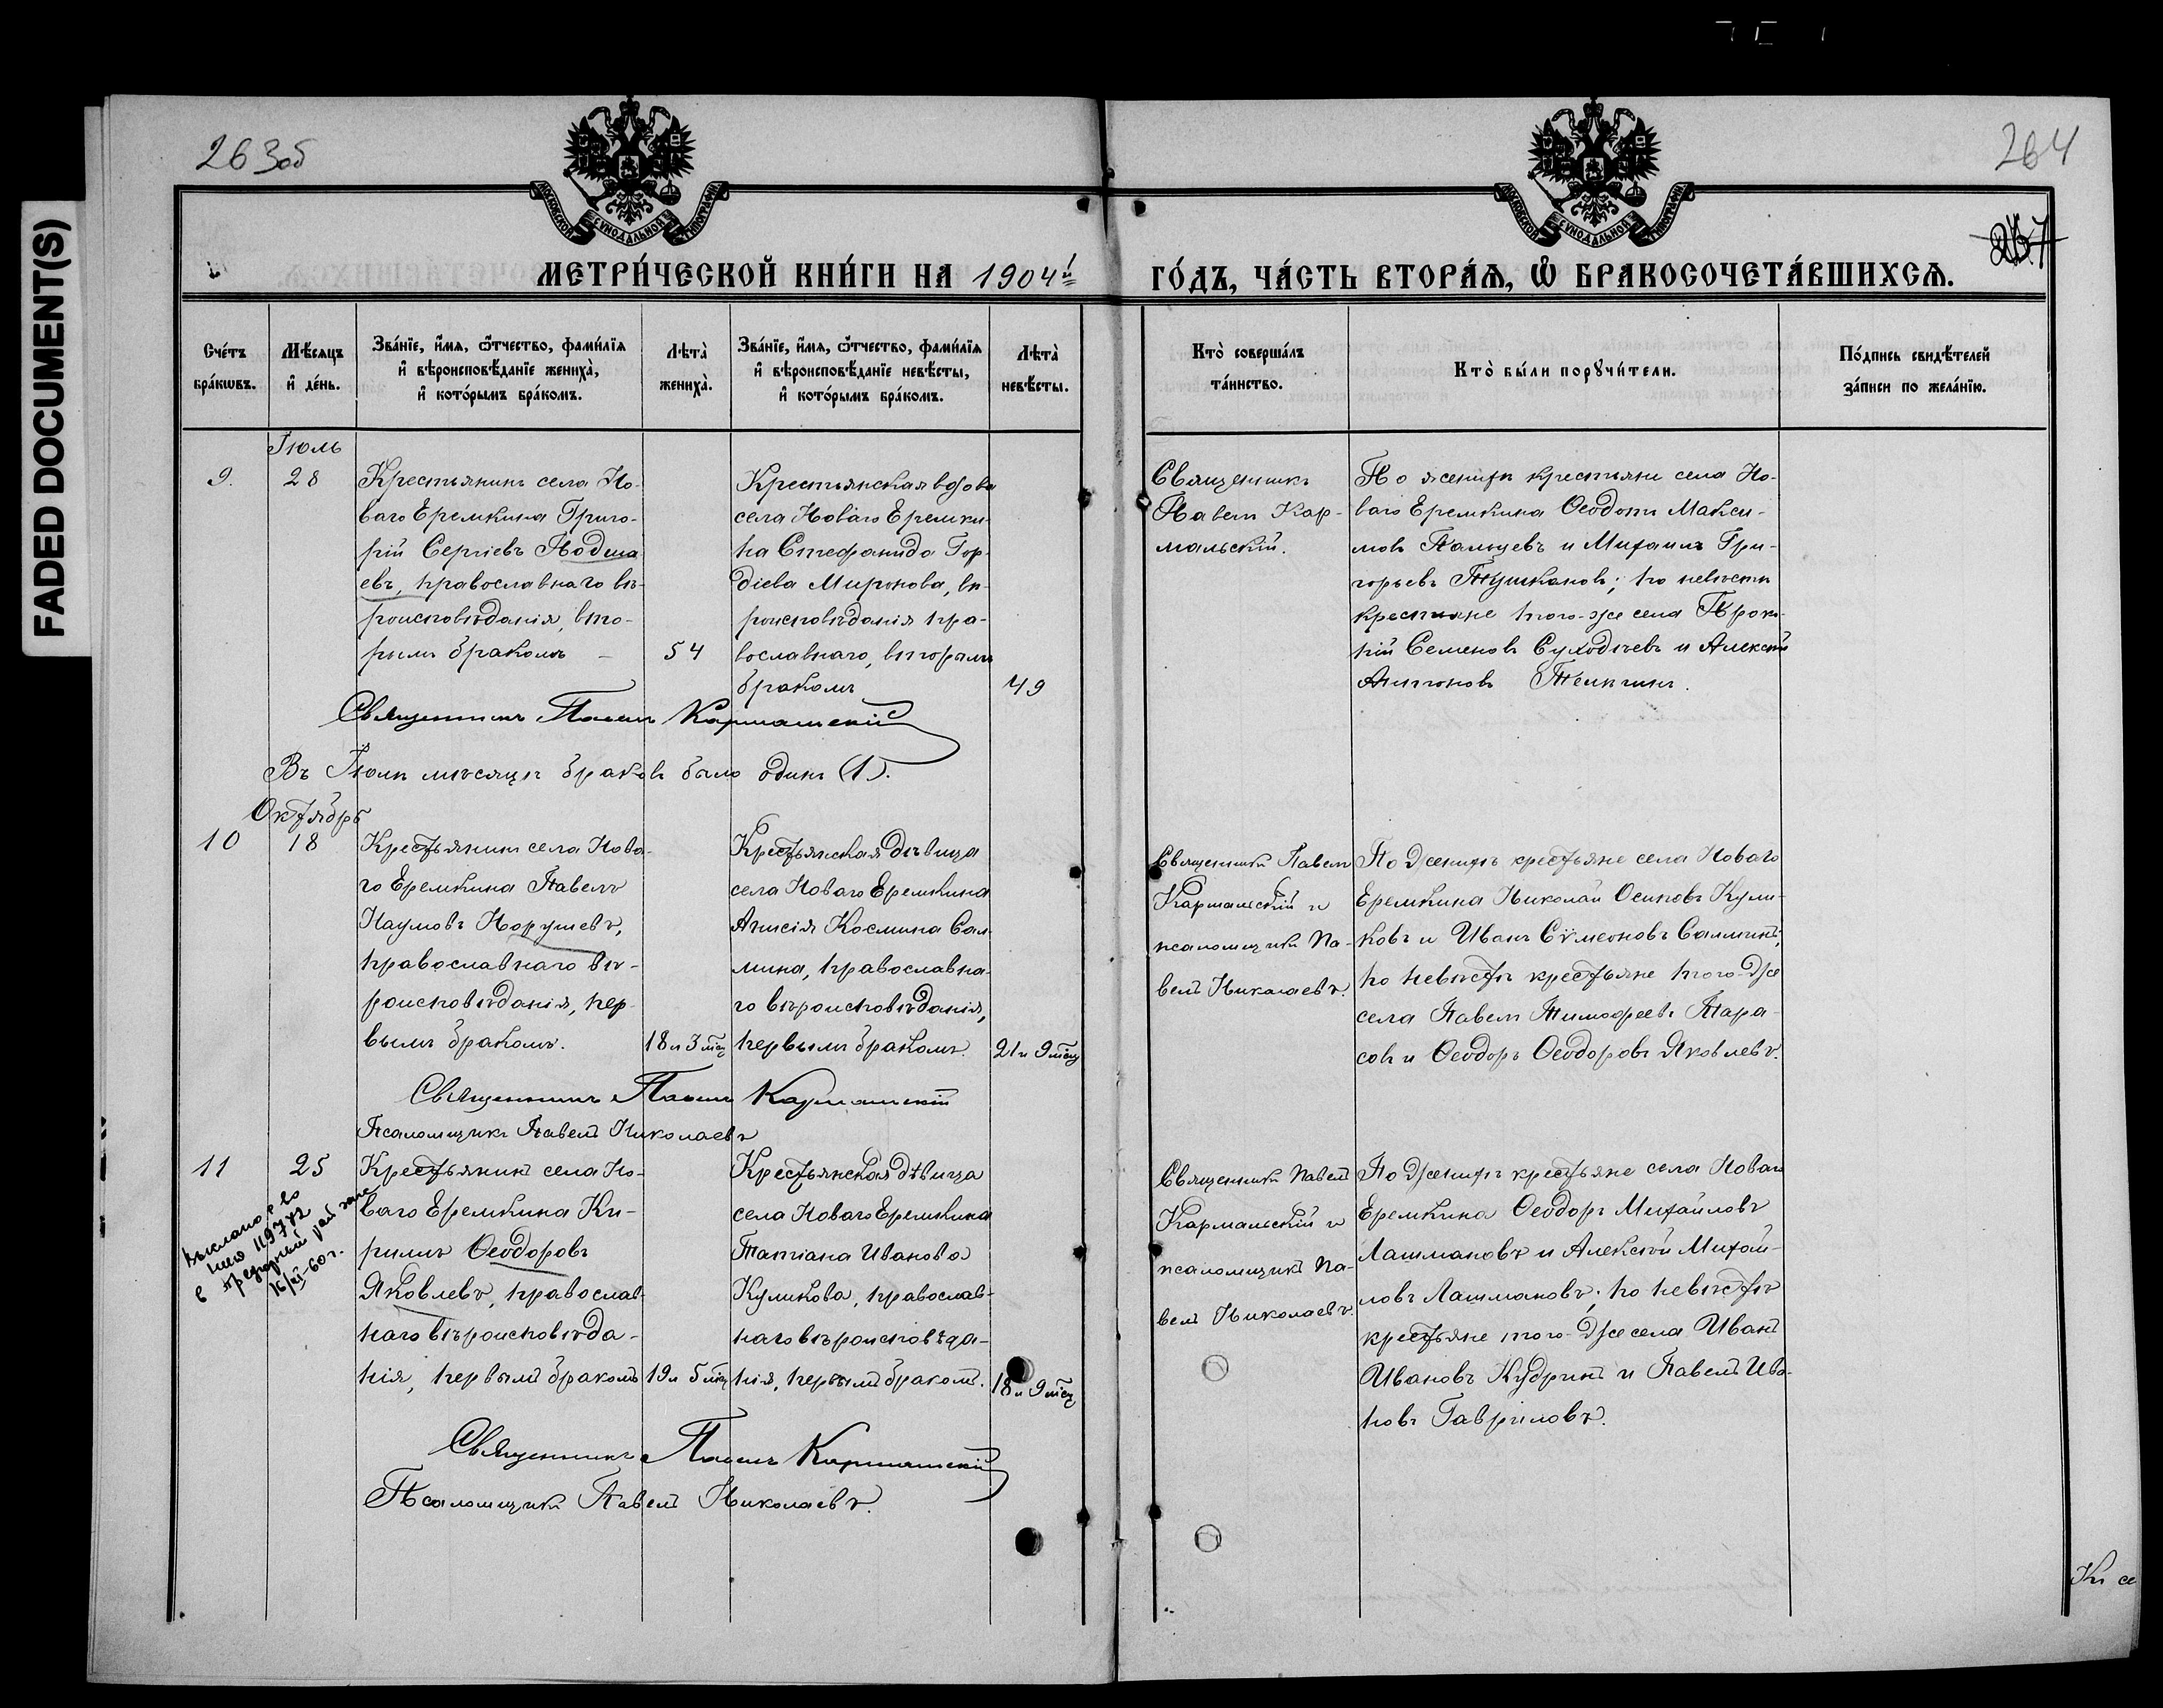 FADED DOCUMENT(S)
263об
264
МОСКОВСКОЙ СѴНОДАЛЬНОЙ ТИПОГРАФІИ
МОСКОВСКОЙ СѴНОДАЛЬНОЙ ТИПОГРАФІИ
МЕТРИ́ЧЕСКОЙ КНИ́ГИ НА 1904й ГО́ДЪ, ЧА́СТЬ ВТОРА́Ѧ, Ѽ БРАКОСОЧЕТА́ВШИХСѦ.
Сче́тъ
бра́кωвъ.
Мѣ́сѧцъ
и҆ де́нь.
Зва́нїе, и҆́мѧ, ѻ҆́тчество, фами́лїѧ
и҆ вѣроисповѣ́данїе жениха̀,
и҆ кото́рымъ бра́комъ.
Лѣта̀
жениха̀.
Зва́нїе, и҆́мѧ, ѻ҆́тчество, фами́лїѧ
и҆ вѣроисповѣ́данїе невѣ́сты,
и҆ кото́рымъ бра́комъ.
Лѣта̀
невѣ́сты.
Кто̀ соверша́лъ
та́инство.
Кто̀ бы́ли порꙋчи́тели.
По́дпись свидѣ́телей
за́писи по жела́нїю.
Іюль
9.
28
Крестьянинъ села Но-
ваго Еремкина Григо-
рій Сергіевъ
евъ, православнаго вѣ-
роисповѣданія, вто-
рымъ бракомъ —
54
Крестьянская вдова
села Новаго Еремки-
на Стефанида Гор-
діева Миронова, вѣ-
роисповѣданія пра-
вославнаго, вторымъ
бракомъ
49
Священникъ
Павелъ Кар-
мальскій.
По женихѣ крестьяне села Но-
ваго Еремкина Ѳеодотъ Макси-
мовъ Пальцевъ и Михаилъ Гри-
горьевъ Тушкановъ; по невѣстѣ
крестьяне того-же села Проко-
пій Семеновъ Суходѣевъ и Алексѣй
Антоновъ
Священникъ Павелъ Кармальскій
Въ Іюлѣ мѣсяцѣ браковъ было одинъ (1).
Октябрь
10
18
Крестьянинъ села Нова-
го Еремкина Павелъ
Наумовъ Норушевъ,
православнаго вѣ-
роисповѣданія, пер-
вымъ бракомъ.
18 и 3 мѣсяц
Крестьянская дѣвица
села Новаго Еремкина
Анисія Космина Сал-
мина, православна-
го вѣроисповѣданія,
первымъ бракомъ.
21 и 9 мѣсяц
Священникъ Павелъ
Кармальскій и
псаломщикъ Па-
велъ Николаевъ.
По женихѣ крестьяне села Новаго
Еремкина Николай Осиповъ Кули-
ковъ и Иванъ Сѵмеоновъ Салминъ;
по невѣстѣ крестьяне того-же
села Павелъ Тимоѳеевъ Тара-
совъ и Ѳеодоръ Ѳеодоровъ Яковлевъ.
Священникъ Павелъ Кармальскій
Псаломщикъ Павелъ Николаевъ
11
25
выслано с-во
1960г.
Крестьянинъ села Но-
ваго Еремкина Ки-
риллъ Ѳеодоровъ
Яковлевъ, православ-
наго вѣроисповѣда-
нія, первымъ бракомъ
19 и 5 мѣсяц
Крестьянская дѣвица
села Новаго Еремкина
Татіана Иванова
Куликова, православ-
наго вѣроисповѣда-
нія, первымъ бракомъ.
18 и 9 мѣсяц
Священникъ Павелъ
Кармальскій и
псаломщикъ Па-
велъ Николаевъ.
По женихѣ крестьяне села Новаго
Еремкина Ѳеодоръ Михайловъ
Лашмановъ и Алексѣй Михай-
ловъ Лашмановъ; по невѣстѣ
крестьяне того-же села Иванъ
Ивановъ Кудринъ и Павелъ Ива-
новъ Гавриловъ.
Священникъ Павелъ Кармальскій
Псаломщикъ Павелъ Николаевъ.